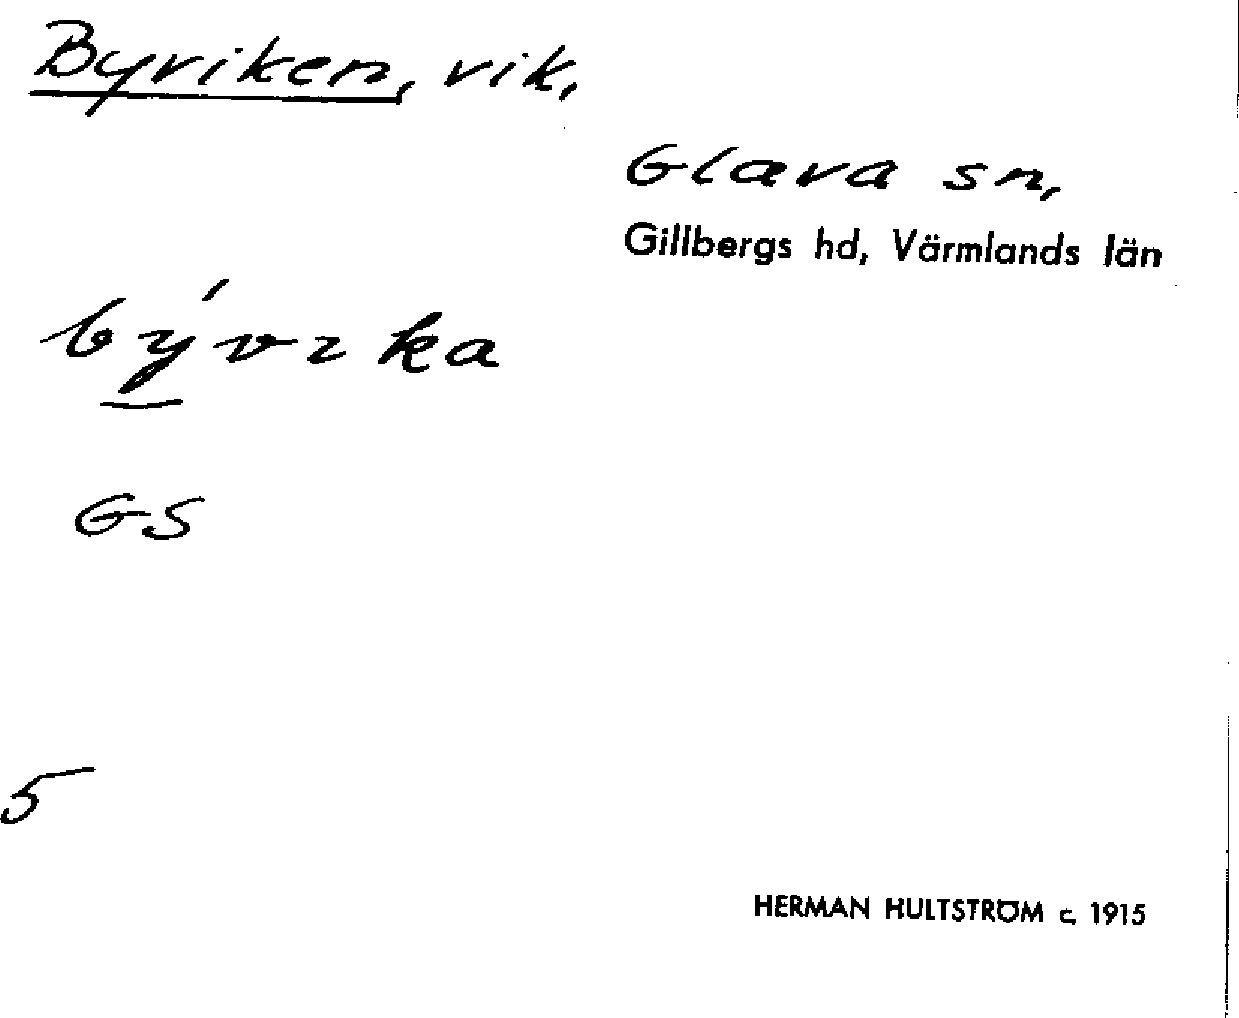 Byviken, vik,
Glava sn,
Gillbergs hd, Värmlands län
bý̲vıka
GS
5
HERMAN HULTSTRÖM c. 1915